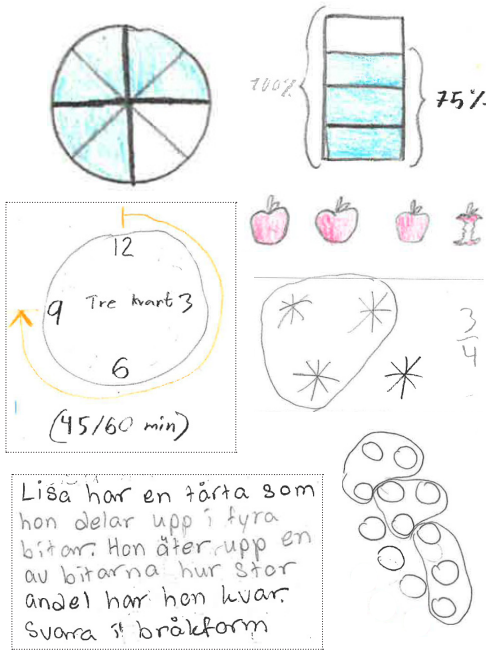 100%
75%
12
9 Tre kvart 3
6
(45/60 min)
3
4
Lisa har en tårta som
hon delar upp i fyra
bitar. Hon äter upp en
av bitarna hur stor
andel har hon kvar.
Svara i bråkform